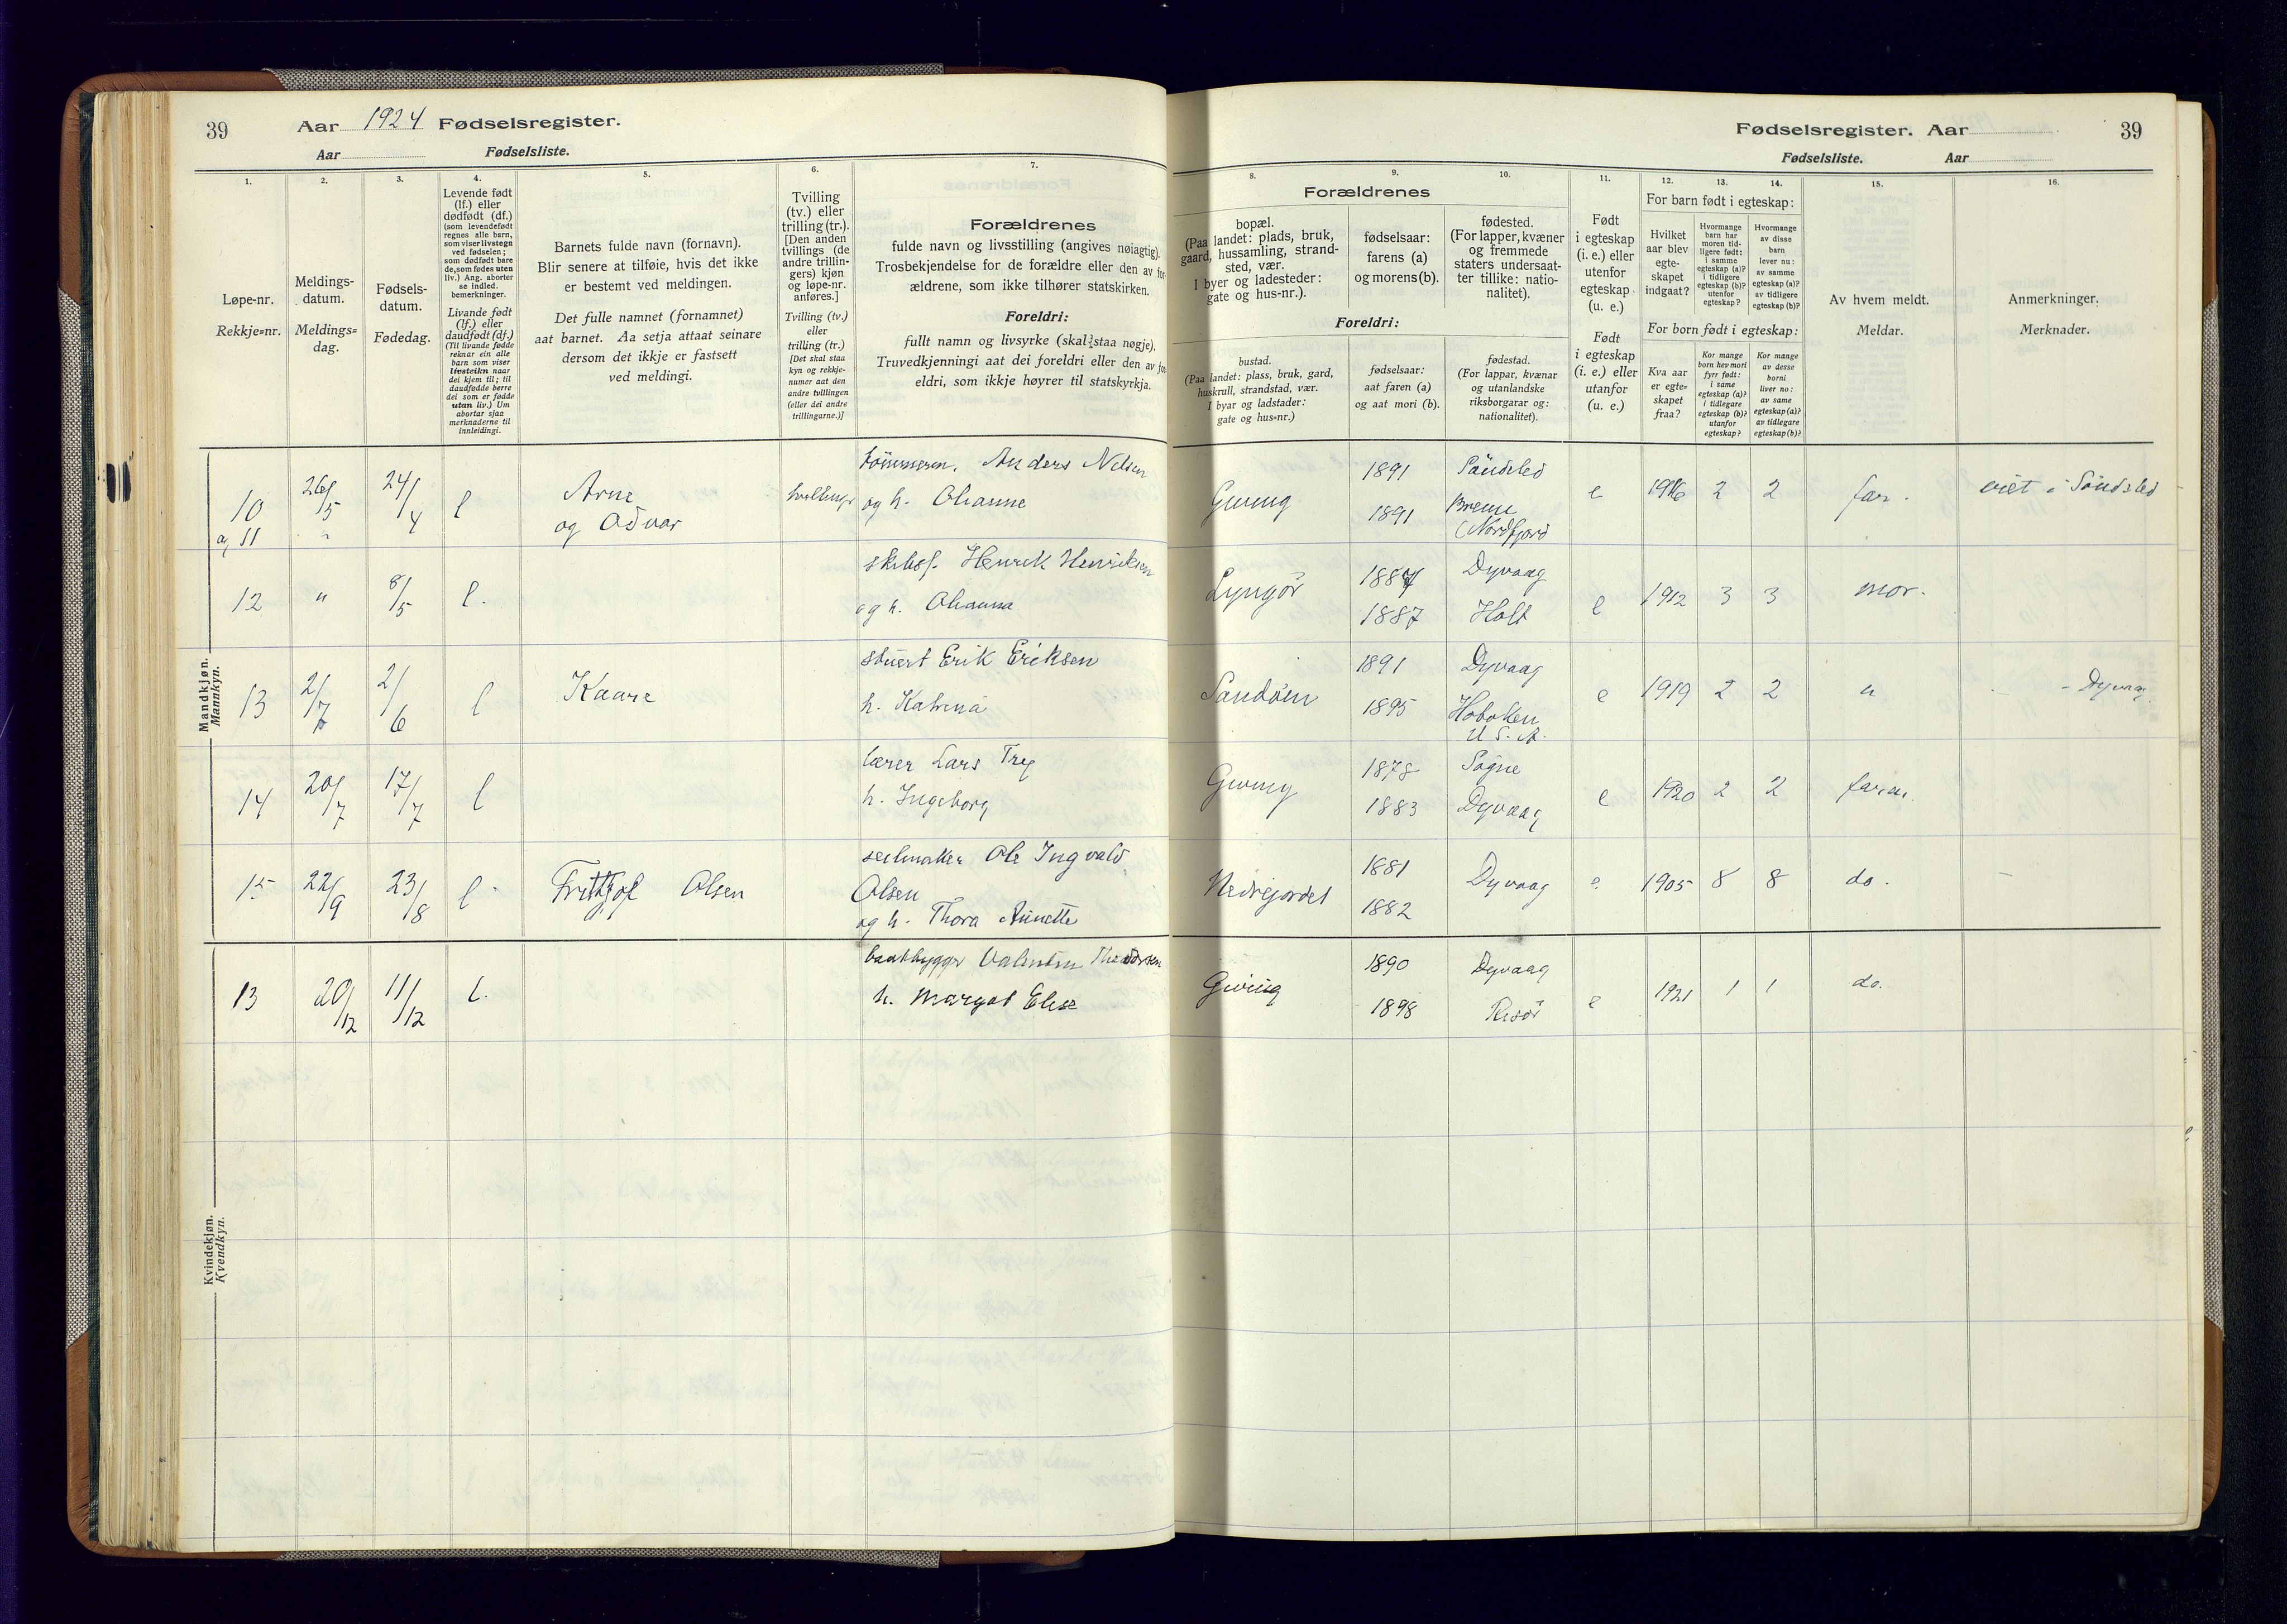 39
Aar 1924 Fødselsregister.
Aar Fødselsliste.
Fødselsregister. Aar
39
Fødselsliste. Aar
1.
Løpe-nr.
Rekkje=nr.
2.
Meldings-
datum.
Meldings=
dag.
3.
Fødsels-
datum.
Fødedag.
4.
Levende født
(lf.) eller
dødfødt (df.)
(som levendefødt
regnes alle barn,
som viser livstegn
ved fødselen;
som dødfødt bare
de, som fødes uten
liv.) Ang. aborter
se indled.
bemerkninger.
Livande født
(lf.) eller
daudfødt (df.)
(Til livande fødde
reknar ein alle
barn som viser
livsteikn naar
dei kjem til; til
daudfødde berre
dei som er fødde
utan liv.) Um
abortar sjaa
merknaderne til
innleidingi.
5.
Barnets fulde navn (fornavn).
Blir senere at tilføie, hvis det ikke
er bestemt ved meldingen.
Det fulle namnet (fornamnet)
aat barnet. Aa setja attaat seinare
dersom det ikkje er fastsett
ved meldingi.
6.
Tvilling
(tv.) eller
trilling (tr.).
[Den anden
tvillings (de
andre trillin-
gers) kjøn
og løpe-nr.
anføres.]
Tvilling (tv.)
eller
trilling (tr.)
[Det skal staa
kyn og rekkje-
numer aat den
andre tvillingen
(eller dei andre
trillingarne.)]
7.
Forældrenes
fulde navn og livsstilling (angives nøiagtig).
Trosbekjendelse for de forældre eller den av for
ældrene, som ikke tilhører statskirken.
Foreldri:
fullt namn og livsyrke (skal staa nøgje).
Truvedkjenningi aat dei foreldri eller den av for
eldri, som ikkje høyrer til statskyrkja.
8.
Forældrenes
bopæl.
(Paa landet: plads, bruk,
gaard, hussamling, strand-
sted, vær.
I byer og ladesteder:
gate og hus-nr.).
Foreldri:
bustad.
(Paa landet: plass, bruk, gard,
huskrull, strandstad, vær.
I byar og ladstader:
gate og hus=nr.)
9.
fødselsaar:
farens (a)
og morens (b).
fødselsaar:
aat faren (a)
og aat mori (b).
10.
fødested.
(For lapper, kvæner
og fremmede
staters undersaat-
ter tillike: natio-
nalitet).
fødestad.
(For lappar, kvænar
og utanlandske
riksborgarar og:
nationalitet).
11.
Født
i egteskap
(i. e.) eller
utenfor
egteskap
(u. e.)
Født
i egteskap
(i. e.) eller
utanfor
(u. e.)
12. 13. 14.
For barn født i egteskap:
Hvilket
aar blev
egte-
skapet
indgaat?
Hvormange
barn har
moren tid-
ligere født:
i samme
egteskap (a)?
i tidligere
egteskap (b)?
utenfor
egteskap?
Hvormange
av disse
barn
lever nu:
av samme
egteskap (a)?
av tidligere
egteskap (b)?
For born født i egteskap:
Kva aar
er egte=
skapet
fraa?
Kor mange
born hev mori
fyrr født:
i same
egteskap (a)?
i tidlegare
egteskap (b)?
utanfor
egteskap?
Kor mange
av desse
borni
liver no:
av same
egteskap (a)?
av tidlegare
egteskap (b)?
15.
Av hvem meldt.
Meldar.
16.
Anmerkninger.
Merknader.
Mandkjøn.
Mannkyn.
10 26/5 24/4 l Arne Anders Nelsen Gwing 1891 e 1916 2 2 far. viet i Söndeled
og 11 " og Odvar og h. Ohanne 1891 (Nordfjord
12 " 8/5 l. Henrik Henriksen Lyngör 1887 Dyvaag e 1912 3 3 mor.
og h. Ohanna 1887 Holt
13 2/7 2/6 l Kaare stuert Erik Eriksen Sandöen 1891 Dyvaag e 1919 2 2 " - Dyvaag
h. Katrina 1895 Hoboken
U. S. A.
14 20/7 17/7 l lærer Lars Try Gwing 1878 Sogne e 1920 2 2
h. Ingeborg 1883 Dyvaag
15 22/9 23/8 l Frithjof Olsen seilmaker Ole Ingvald 1881 Dyvaag e 1905 8 8 do.
Olsen
og h. Thora Annette 1882
Kvindekjøn.
Kvendkyn.
13 20/12 11/12 l. baatbygger Valentin Theodorsen Gwing 1890 Dyvaag e 1921 1 1 do.
h. Margot Elise 1898 Risör